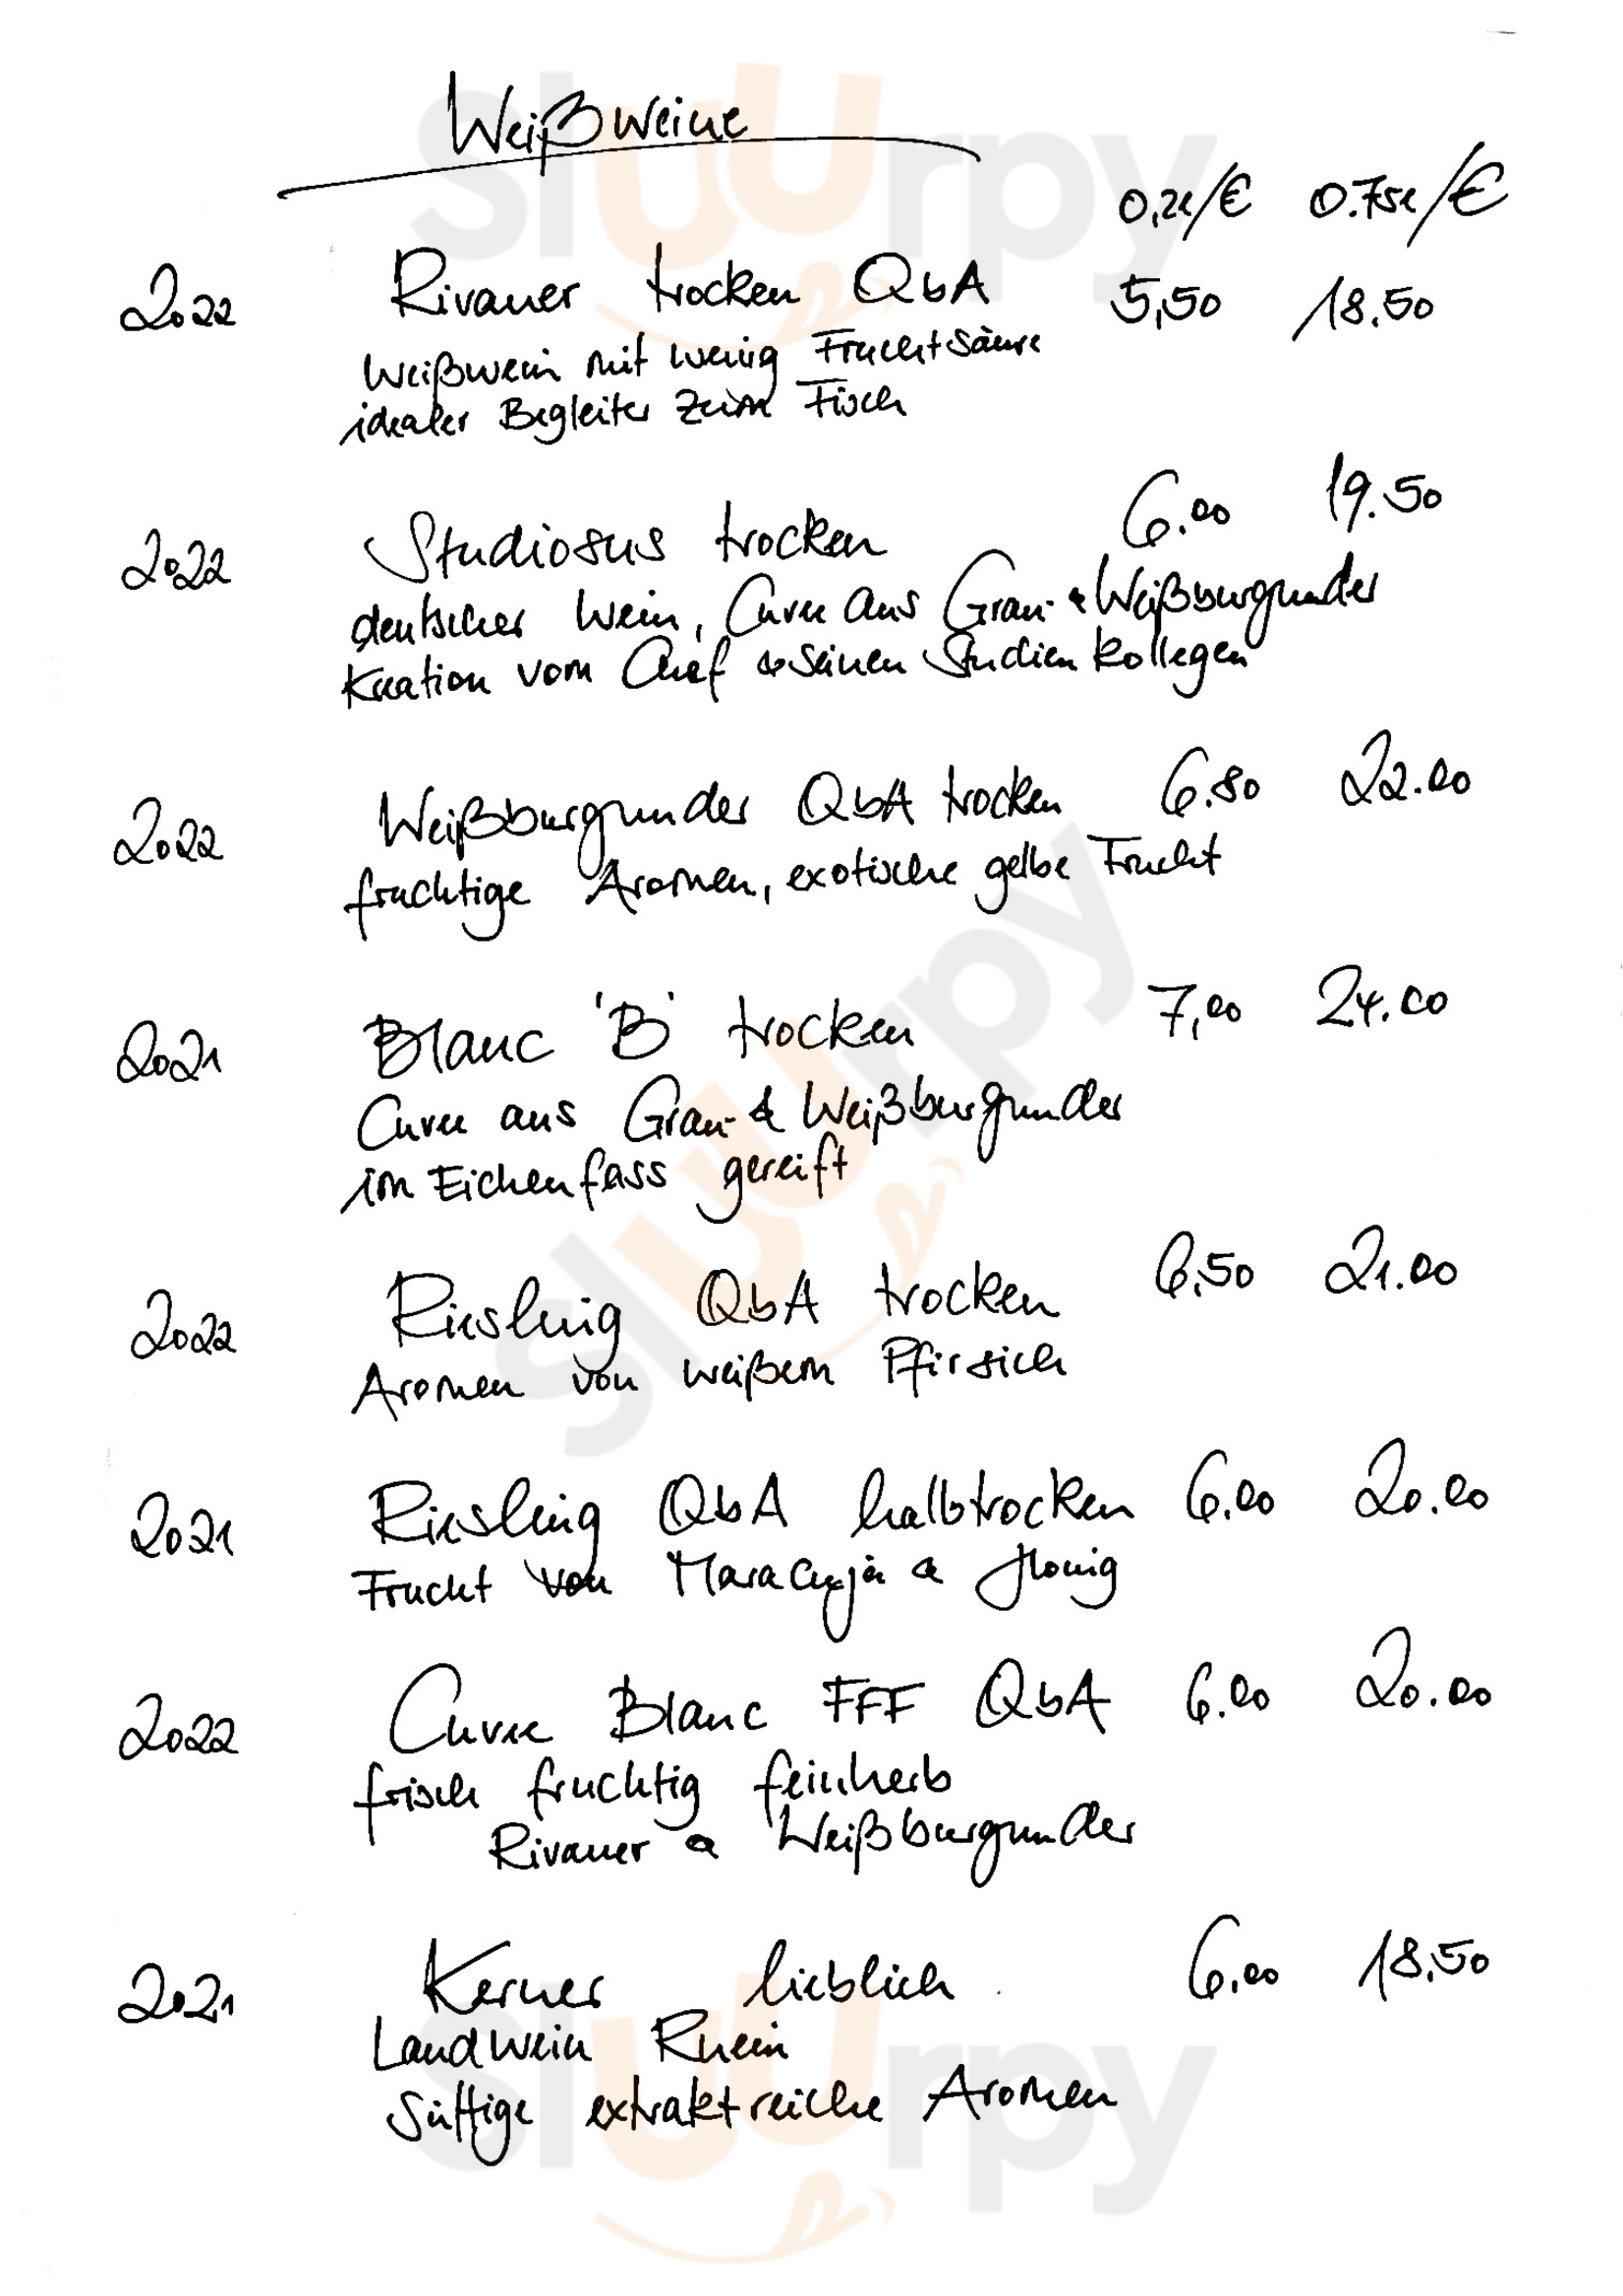 Weißweine
0,2l/€ 0.75l/€
2022 Rivaner trocken QbA 5,50 18.50
Weißwein mit wenig Fruchtsäure
idealer Begleiter zum Fisch
2022 Studiosus trocken 6.00 19.50
deutscher Wein, Cuvee aus Grau- & Weißburgunder
Kreation vom Chef & seinen Studienkollegen
2022 Weißburgunder QbA trocken 6.80 22.00
fruchtige Aromen, exotische gelbe Frucht
2021 Blanc 'B' trocken 7,00 24.00
Cuvee aus Grau- & Weißburgunder
im Eichenfass gereift
2022 Riesling QbA trocken 6,50 21.00
Aromen von weißem Pfirsich
2021 Riesling QbA halbtrocken 6.00 20.00
Frucht von Maracuja & Honig
2022 Cuvee Blanc FFF QbA 6.00 20.00
frisch fruchtig feinherb
Rivaner & Weißburgunder
2021 Kerner lieblich 6,00 18,50
Landwein Rhein
Süffige extraktreiche Aromen
sluurpy
sluurpy
sluurpy